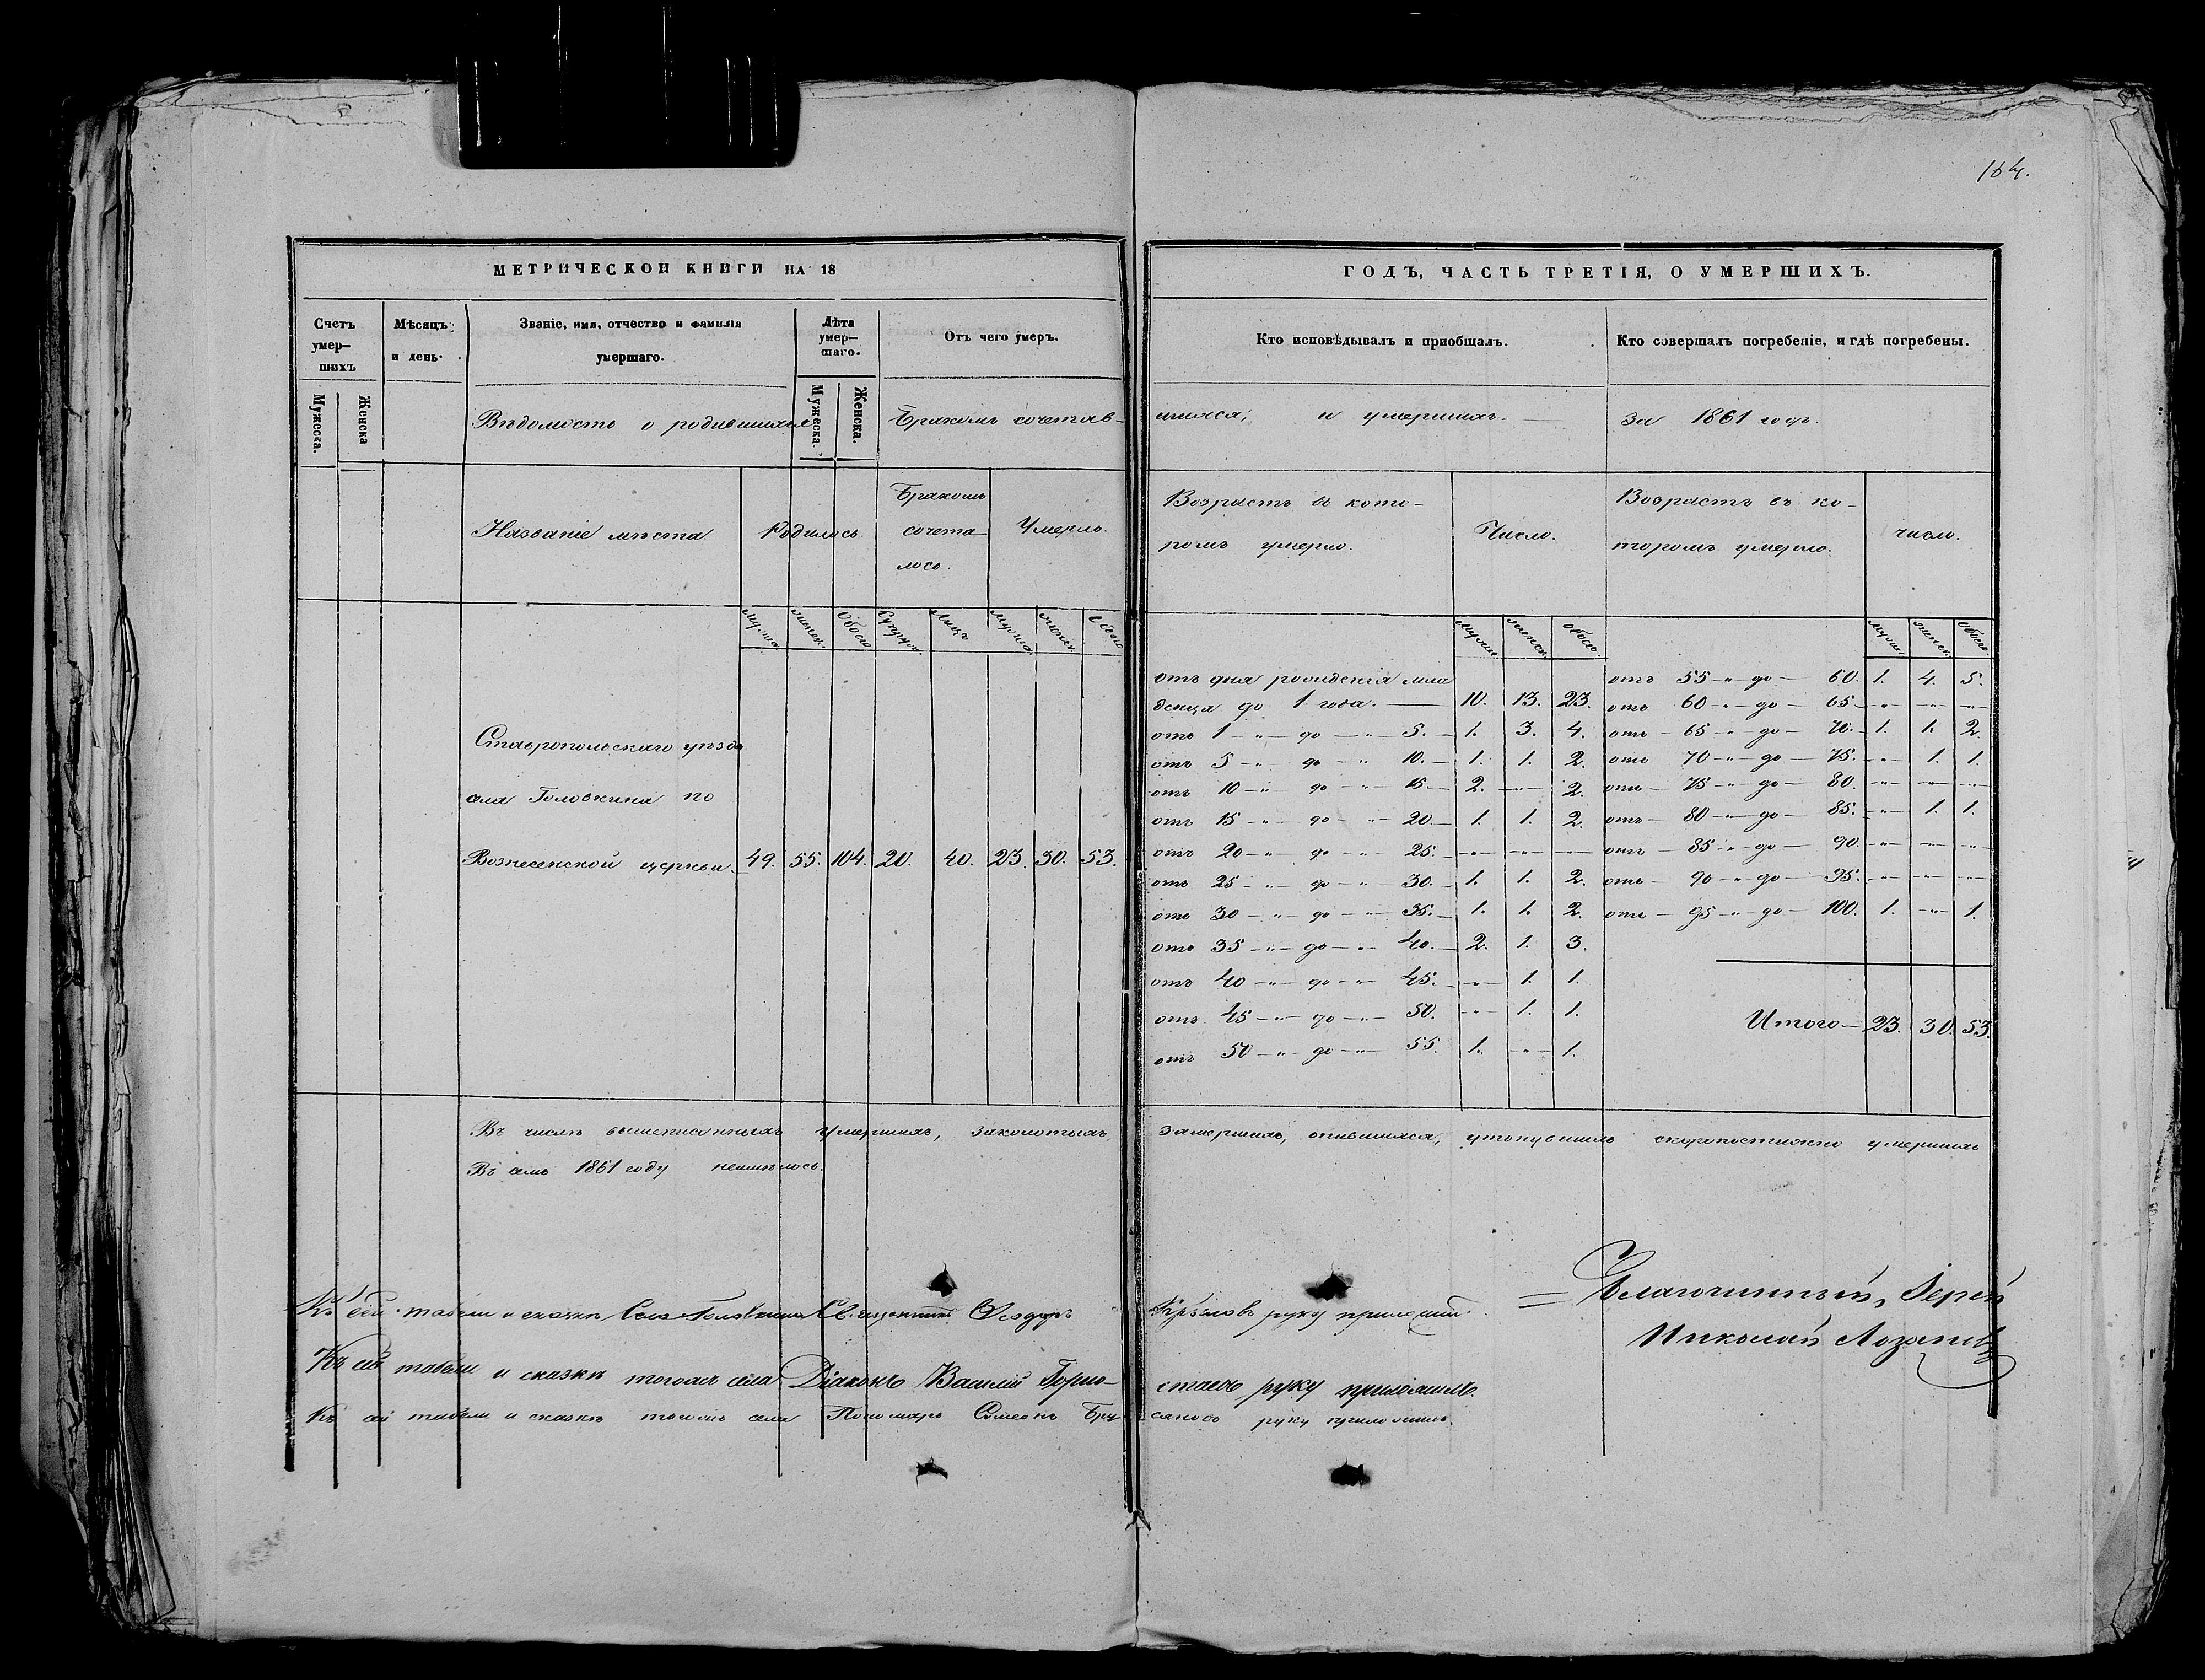 164.
МЕТРИЧЕСКОЙ КНИГИ НА 18
ГОДЪ, ЧАСТЬ ТРЕТІЯ, О УМЕРШИХЪ.
Счетъ умер-шихъ
Мѣсяцъ и день.
Званіе, имя, отчество и фамилія умершаго.
Лѣта умер-шаго.
Отъ чего умеръ.
Кто исповѣдывалъ и пріобщалъ.
Кто совершалъ погребеніе, и гдѣ погребены.
Мужеска.
Женска
Мужеска.
Женска.
Вѣдомость о родившихся Бракомъ сочетав-
шихся, и умершихъ за 1861 годъ.
Названіе мѣста
Родилось
Бракомъ
сочета
лось.
Умерло.
Возрастъ въ кото-
ромъ умерло.
Число.
Возрастъ въ ко-
торомъ умерло.
число.
женск. Обоего Лицъ женск.
женск. обоего.
женск. обоего.
Ставропольскаго уѣзда
села Головкина по
Вознесенской церкви 49. 55. 104. 20. 40. 23. 30. 53.
отъ дня рожденія мла
денца до 1 года. 10. 13. 23.
отъ 1 -"- до -"- 5. 1. 3. 4.
отъ 5 -"- до -"- 10. 1. 1. 2.
отъ 10 -"- до -"- 15. 2. -"- 2.
отъ 15 -"- до -"- 20. 1. 1. 2.
отъ 20 -"- до -"- 25. -"- -"- -"-
отъ 25 -"- до -"- 30. 1. 1. 2.
отъ 30 -"- до -"- 35. 1. 1. 2.
отъ 35 -"- до -"- 40. 2. 1. 3.
отъ 40 -"- до -"- 45. -"- 1. 1.
отъ 45 -"- до -"- 50. -"- 1. 1.
отъ 50 -"- до -"- 55. 1. -"- 1.
отъ 55 -"- до - 60. 1. 4. 5.
отъ 60 -"- до - 65 -"- -"- -"-
отъ 65 -"- до - 70. 1. 1. 2.
отъ 70 -"- до - 75. -"- 1. 1.
отъ 75 -"- до - 80. -"- -"- -"-
отъ 80 -"- до - 85. -"- 1. 1.
отъ 85 -"- до - 90. -"- -"- -"-
отъ 90 -"- до - 95. -"- -"- -"-
отъ 95 -"- до - 100. 1. -"- 1.
Итого - 23. 30. 53.
Въ числѣ вышеписанныхъ умершихъ, заколотыхъ, замерзшихъ, опившихся, утонувшихъ скоропостижно умершихъ
Въ семъ 1861 году неимѣлось.
Къ сей табели и сказкѣ Села Головкина Священникъ Ѳеодоръ руку приложилъ.
Къ сей табели и сказкѣ тогожъ села Діаконъ Василій Горно-стаевъ руку приложилъ.
Къ сей табели и сказкѣ тогожъ села Пономарь Симеонъ руку приложилъ.
Благочинный, Іерей
Николай